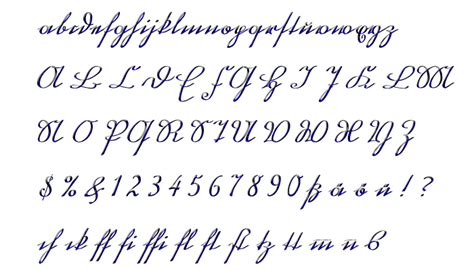 abcdefghijklmnopqrstuvwxyz
A B C D E F G H I J K L M
N O P Q R S T U V W X Y Z
$ % & 1 2 3 4 5 6 7 8 9 0 ß ä ö ü ! ?
ch ck ff fi ffi fl ft st tz tt m̅ n̅ 6